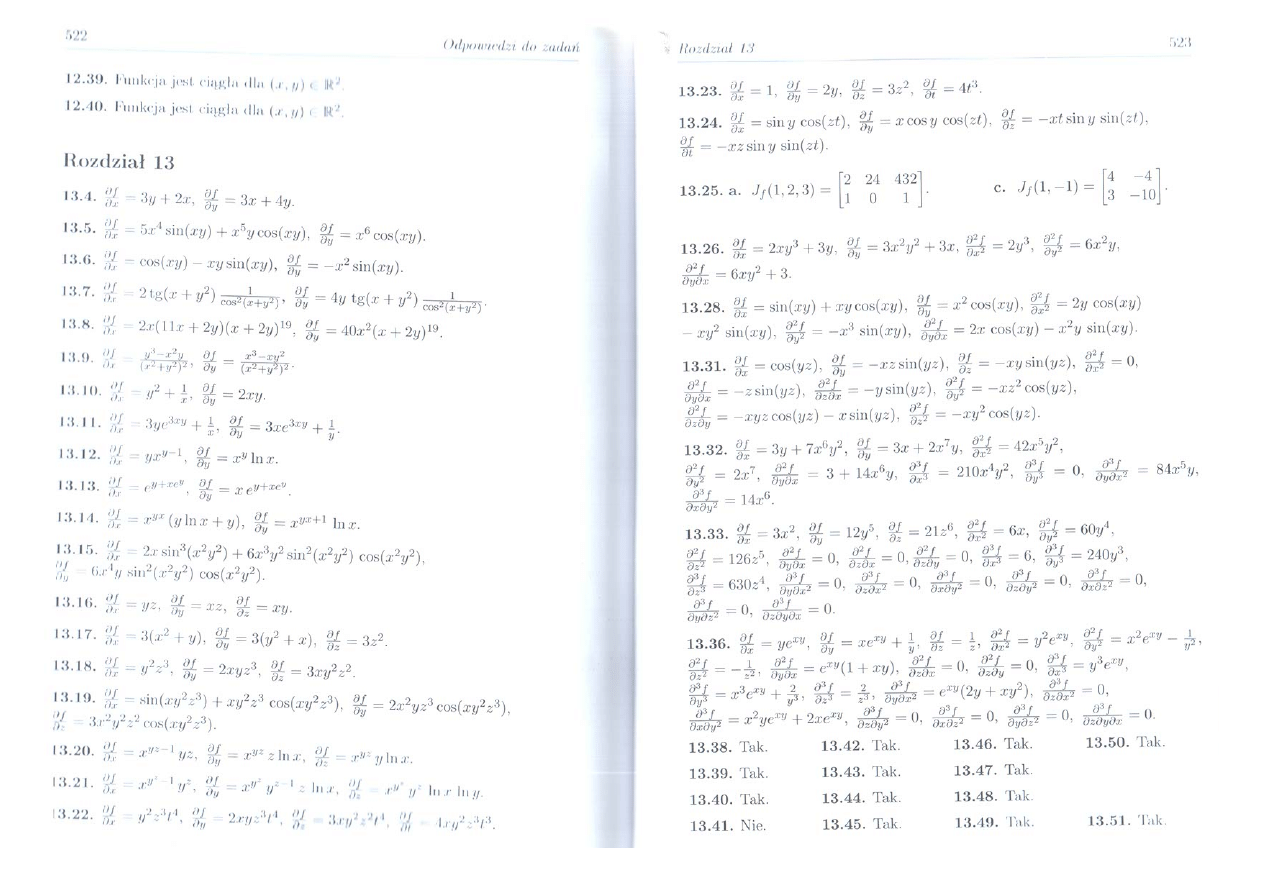 522
Odpowiedzi do zadań
12.39. Funkcja jest ciągła dla (x, y) ∈ ℝ².
12.40. Funkcja jest ciągła dla (x, y) ∈ ℝ².
Rozdział 13
13.4. ∂f/∂x = 3y + 2x, ∂f/∂y = 3x + 4y.
13.5. ∂f/∂x = 5x⁴ sin(xy) + x⁵y cos(xy), ∂f/∂y = x⁶ cos(xy).
13.6. ∂f/∂x = cos(xy) − xy sin(xy), ∂f/∂y = −x² sin(xy).
13.7. ∂f/∂x = 2 tg(x + y²) 1/cos²(x+y²), ∂f/∂y = 4y tg(x + y²) 1/cos²(x+y²).
13.8. ∂f/∂x = 2x(11x + 2y)(x + 2y)¹⁹, ∂f/∂y = 40x²(x + 2y)¹⁹.
13.9. ∂f/∂x = (y³−x²y)/(x²+y²)², ∂f/∂y = (x³−xy²)/(x²+y²)².
13.10. ∂f/∂x = y² + 1/x, ∂f/∂y = 2xy.
13.11. ∂f/∂x = 3ye^(3xy) + 1/x, ∂f/∂y = 3xe^(3xy) + 1/y.
13.12. ∂f/∂x = yx^(y−1), ∂f/∂y = x^y ln x.
13.13. ∂f/∂x = e^(y+xe^y), ∂f/∂y = x e^(y+xe^y).
13.14. ∂f/∂x = x^(yx) (y ln x + y), ∂f/∂y = x^(yx+1) ln x.
13.15. ∂f/∂x = 2x sin³(x²y²) + 6x³y² sin²(x²y²) cos(x²y²),
∂f/∂y = 6x⁴y sin²(x²y²) cos(x²y²).
13.16. ∂f/∂x = yz, ∂f/∂y = xz, ∂f/∂z = xy.
13.17. ∂f/∂x = 3(x² + y), ∂f/∂y = 3(y² + x), ∂f/∂z = 3z².
13.18. ∂f/∂x = y²z³, ∂f/∂y = 2xyz³, ∂f/∂z = 3xy²z².
13.19. ∂f/∂x = sin(xy²z³) + xy²z³ cos(xy²z³), ∂f/∂y = 2x²yz³ cos(xy²z³),
∂f/∂z = 3x²y²z² cos(xy²z³).
13.20. ∂f/∂x = x^(yz−1) yz, ∂f/∂y = x^(yz) z ln x, ∂f/∂z = x^(yz) y ln x.
13.21. ∂f/∂x = x^(y^z−1) y^z, ∂f/∂y = x^(y^z) y^(z−1) z ln x, ∂f/∂z = x^(y^z) y^z ln x ln y.
13.22. ∂f/∂x = y²z³t⁴, ∂f/∂y = 2xyz³t⁴, ∂f/∂z = 3xy²z²t⁴, ∂f/∂t = 4xy²z³t³.
Rozdział 13
523
13.23. ∂f/∂x = 1, ∂f/∂y = 2y, ∂f/∂z = 3z², ∂f/∂t = 4t³.
13.24. ∂f/∂x = sin y cos(zt), ∂f/∂y = x cos y cos(zt), ∂f/∂z = −xt sin y sin(zt),
∂f/∂t = −xz sin y sin(zt).
13.25. a. J_f(1, 2, 3) = [2 24 432; 1 0 1]. c. J_f(1, −1) = [4 −4; 3 −10].
13.26. ∂f/∂x = 2xy³ + 3y, ∂f/∂y = 3x²y² + 3x, ∂²f/∂x² = 2y³, ∂²f/∂y² = 6x²y,
∂²f/∂y∂x = 6xy² + 3.
13.28. ∂f/∂x = sin(xy) + xy cos(xy), ∂f/∂y = x² cos(xy), ∂²f/∂x² = 2y cos(xy)
− xy² sin(xy), ∂²f/∂y² = −x³ sin(xy), ∂²f/∂y∂x = 2x cos(xy) − x²y sin(xy).
13.31. ∂f/∂x = cos(yz), ∂f/∂y = −xz sin(yz), ∂f/∂z = −xy sin(yz), ∂²f/∂x² = 0,
∂²f/∂y∂x = −z sin(yz), ∂²f/∂z∂x = −y sin(yz), ∂²f/∂y² = −xz² cos(yz),
∂²f/∂z∂y = −xyz cos(yz) − x sin(yz), ∂²f/∂z² = −xy² cos(yz).
13.32. ∂f/∂x = 3y + 7x⁶y², ∂f/∂y = 3x + 2x⁷y, ∂²f/∂x² = 42x⁵y²,
∂²f/∂y² = 2x⁷, ∂²f/∂y∂x = 3 + 14x⁶y, ∂³f/∂x³ = 210x⁴y², ∂³f/∂y³ = 0, ∂³f/∂y∂x² = 84x⁵y,
∂³f/∂x∂y² = 14x⁶.
13.33. ∂f/∂x = 3x², ∂f/∂y = 12y⁵, ∂f/∂z = 21z⁶, ∂²f/∂x² = 6x, ∂²f/∂y² = 60y⁴,
∂²f/∂z² = 126z⁵, ∂²f/∂y∂x = 0, ∂²f/∂z∂x = 0, ∂²f/∂z∂y = 0, ∂³f/∂x³ = 6, ∂³f/∂y³ = 240y³,
∂³f/∂z³ = 630z⁴, ∂³f/∂y∂x² = 0, ∂³f/∂z∂x² = 0, ∂³f/∂x∂y² = 0, ∂³f/∂z∂y² = 0, ∂³f/∂x∂z² = 0,
∂³f/∂y∂z² = 0, ∂³f/∂z∂y∂x = 0.
13.36. ∂f/∂x = ye^(xy), ∂f/∂y = xe^(xy) + 1/y, ∂f/∂z = 1/z, ∂²f/∂x² = y²e^(xy), ∂²f/∂y² = x²e^(xy) − 1/y²,
∂²f/∂z² = −1/z², ∂²f/∂y∂x = e^(xy)(1 + xy), ∂²f/∂z∂x = 0, ∂²f/∂z∂y = 0, ∂³f/∂x³ = y³e^(xy),
∂³f/∂y³ = x³e^(xy) + 2/y³, ∂³f/∂z³ = 2/z³, ∂³f/∂y∂x² = e^(xy)(2y + xy²), ∂³f/∂z∂x² = 0,
∂³f/∂x∂y² = x²ye^(xy) + 2xe^(xy), ∂³f/∂z∂y² = 0, ∂³f/∂x∂z² = 0, ∂³f/∂y∂z² = 0, ∂³f/∂z∂y∂x = 0.
13.38. Tak. 13.42. Tak. 13.46. Tak. 13.50. Tak.
13.39. Tak. 13.43. Tak. 13.47. Tak.
13.40. Tak. 13.44. Tak. 13.48. Tak.
13.41. Nie. 13.45. Tak. 13.49. Tak. 13.51. Tak.